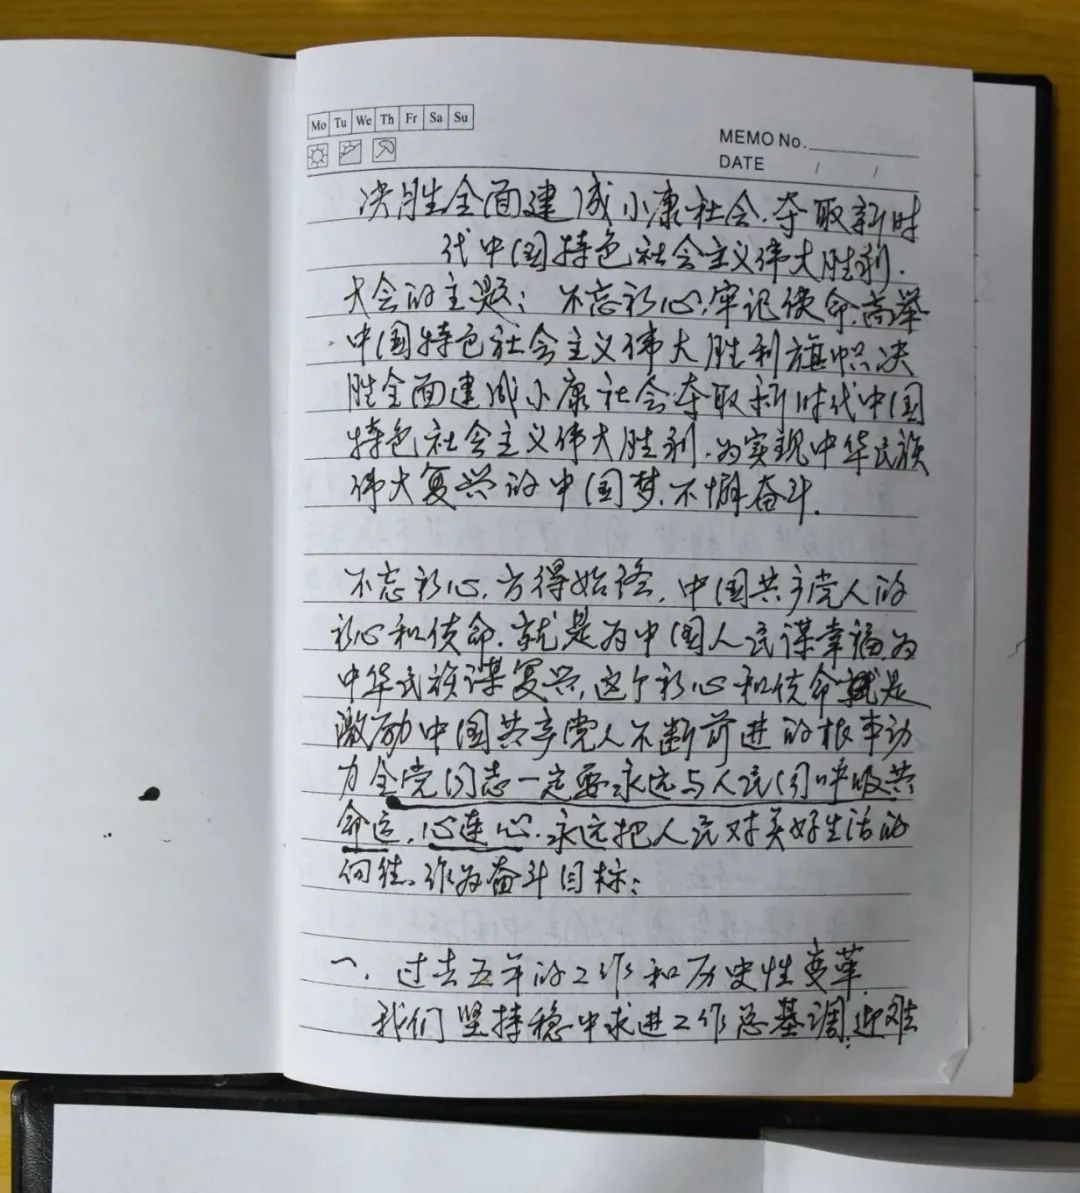 Mo Tu We Th Fr Sa Su
MEMO No.
DATE / /
决胜全面建成小康社会.夺取新时
代中国特色社会主义伟大胜利.
大会的主题: 不忘初心,牢记使命.高举
中国特色社会主义伟大胜利旗帜决
胜全面建成小康社会夺取新时代中国
特色社会主义伟大胜利.为实现中华民族
伟大复兴的中国梦.不懈奋斗.
不忘初心,方得始终.中国共产党人的
初心和使命.就是为中国人民谋幸福为
中华民族谋复兴,这个初心和使命就是
激励中国共产党人不断前进的根本动
力全党同志一定要永远与人民同呼吸共
命运.心连心.永远把人民对美好生活的
向往.作为奋斗目标:
一.过去五年的工作和历史性变革.
我们坚持稳中求进工作总基调.迎难